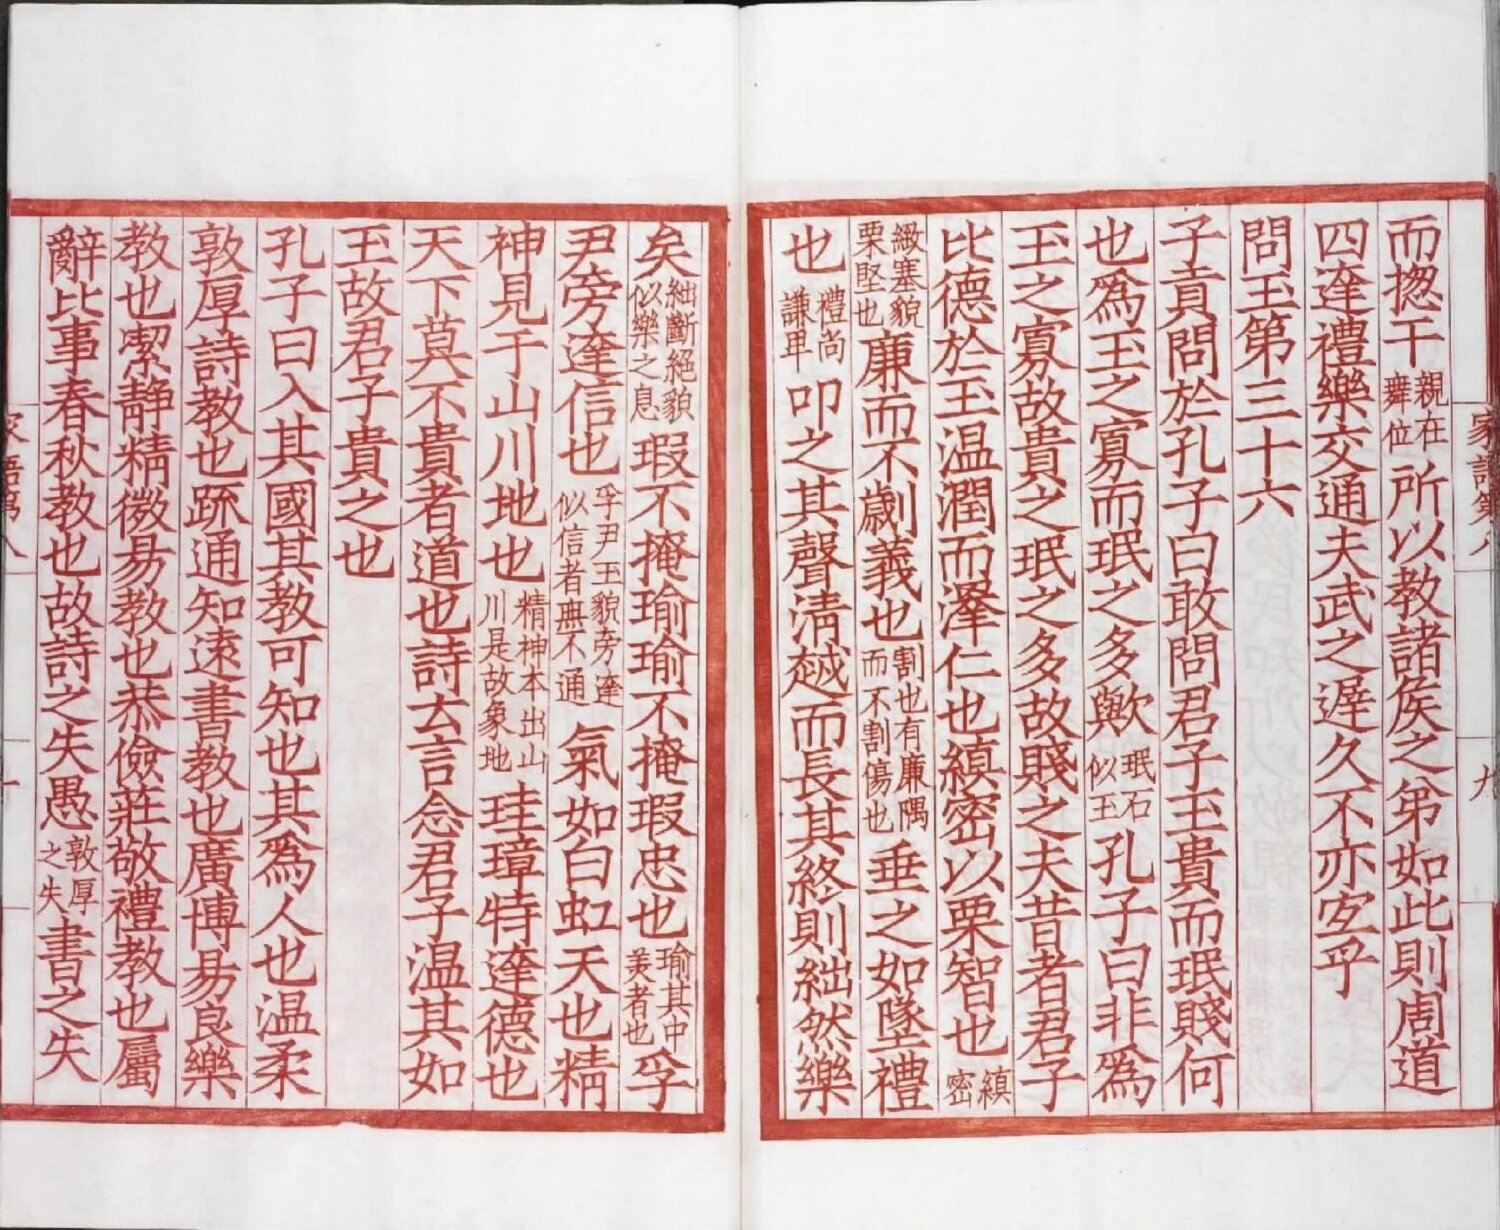 而揔干親在舞位所以教諸侯之弟如此則周道
四達禮樂交通夫武之遟久不亦宜乎
問玉第三十六
子貢問於孔子曰敢問君子玉貴而珉賤何
也爲玉之寡而珉之多歟珉石似玉孔子曰非爲
玉之寡故貴之珉之多故賤之夫昔者君子
比德於玉温潤而澤仁也縝密以栗智也縝密
緻塞貌栗堅也廉而不劌義也割也有廉隅而不割傷也垂之如墜禮
也禮尚謙卑叩之其聲清越而長其終則絀然樂
矣絀斷絕貌似樂之息瑕不掩瑜瑜不掩瑕忠也瑜其中美者也孚
尹旁達信也孚尹玉貌旁達似信者無不通氣如白虹天也精
神見于山川地也精神本出山川是故象地珪璋特達德也
天下莫不貴者道也詩云言念君子温其如
玉故君子貴之也
孔子曰入其國其教可知也其爲人也温柔
敦厚詩教也疏通知遠書教也廣博易良樂
教也潔靜精微易教也恭儉莊敬禮教也屬
辭比事春秋教也故詩之失愚敦厚之失書之失
家語第八
九